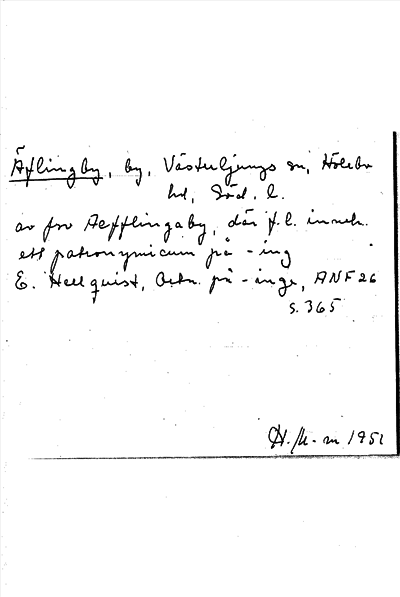 Äflingby, by, Västerljungs sn, Hölebo
hd, Söd. l.
av fsv Aefflingaby, där f.l. inneh.
ett patronymicum på -ing
E. Hellquist, Ortn. på -inge, ANF 26
s. 365
H. 1951